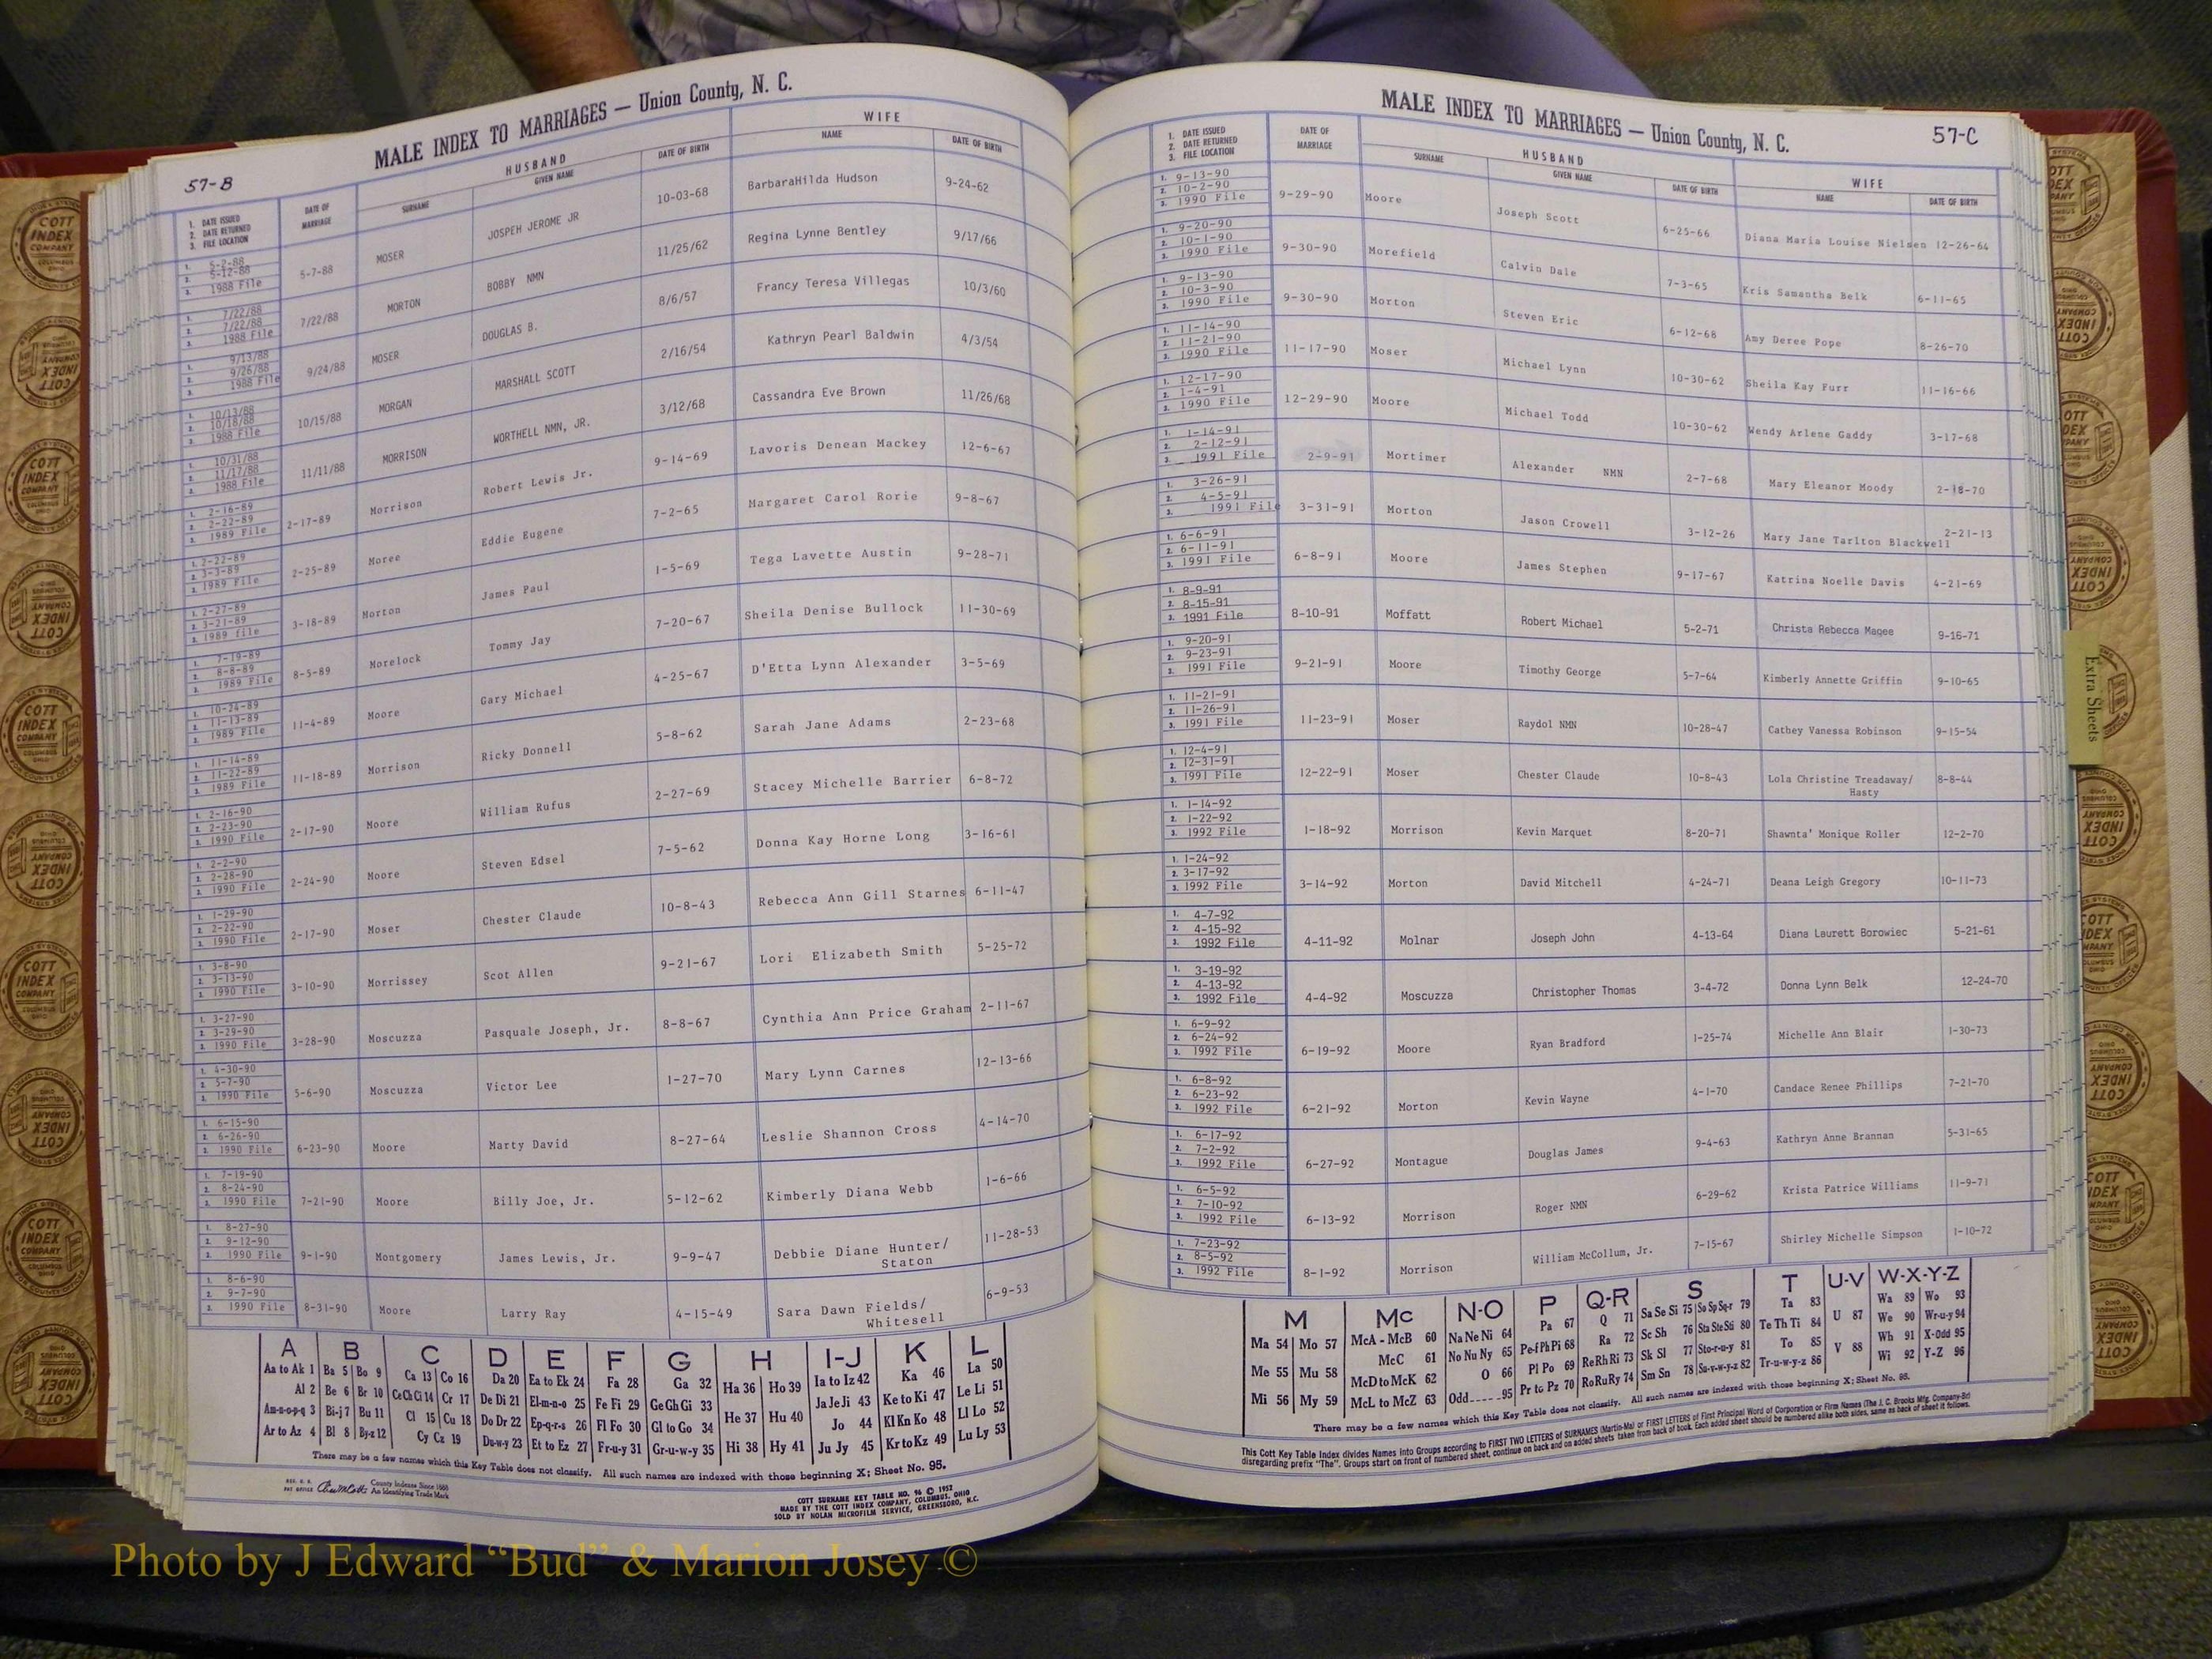 MALE INDEX TO MARRIAGES — Union County, N. C.
57-B
1. DATE ISSUED 2. DATE RETURNED 3. FILE LOCATION DATE OF MARRIAGE HUSBAND SURNAME GIVEN NAME DATE OF BIRTH WIFE NAME DATE OF BIRTH
1. 5-2-88 2. 5-12-88 3. 1988 File 5-7-88 MOSER JOSPEH JEROME JR 10-03-68 BarbaraHilda Hudson 9-24-62
1. 7/22/88 2. 7/22/88 3. 1988 File 7/22/88 MORTON BOBBY NMN 11/25/62 Regina Lynne Bentley 9/17/66
1. 9/13/88 2. 9/26/88 3. 1988 File 9/24/88 MOSER DOUGLAS B. 8/6/57 Francy Teresa Villegas 10/3/60
1. 10/13/88 2. 10/18/88 3. 1988 File 10/15/88 MORGAN MARSHALL SCOTT 2/16/54 Kathryn Pearl Baldwin 4/3/54
1. 10/31/88 2. 11/17/88 3. 1988 File 11/11/88 MORRISON WORTHELL NMN, JR. 3/12/68 Cassandra Eve Brown 11/26/68
1. 2-16-89 2. 2-22-89 3. 1989 File 2-17-89 Morrison Robert Lewis Jr. 9-14-69 Lavoris Denean Mackey 12-6-67
1. 2-22-89 2. 3-3-89 3. 1989 File 2-25-89 Moree Eddie Eugene 7-2-65 Margaret Carol Rorie 9-8-67
1. 2-27-89 2. 3-21-89 3. 1989 file 3-18-89 Morton James Paul 1-5-69 Tega Lavette Austin 9-28-71
1. 7-19-89 2. 8-8-89 3. 1989 File 8-5-89 Morelock Tommy Jay 7-20-67 Sheila Denise Bullock 11-30-69
1. 10-24-89 2. 11-13-89 3. 1989 File 11-4-89 Moore Gary Michael 4-25-67 D'Etta Lynn Alexander 3-5-69
1. 11-14-89 2. 11-22-89 3. 1989 File 11-18-89 Morrison Ricky Donnell 5-8-62 Sarah Jane Adams 2-23-68
1. 2-16-90 2. 2-23-90 3. 1990 File 2-17-90 Moore William Rufus 2-27-69 Stacey Michelle Barrier 6-8-72
1. 2-2-90 2. 2-28-90 3. 1990 File 2-24-90 Moore Steven Edsel 7-5-62 Donna Kay Horne Long 3-16-61
1. 1-29-90 2. 2-22-90 3. 1990 File 2-17-90 Moser Chester Claude 10-8-43 Rebecca Ann Gill Starnes 6-11-47
1. 3-8-90 2. 3-13-90 3. 1990 File 3-10-90 Morrissey Scot Allen 9-21-67 Lori Elizabeth Smith 5-25-72
1. 3-27-90 2. 3-29-90 3. 1990 File 3-28-90 Moscuzza Pasquale Joseph, Jr. 8-8-67 Cynthia Ann Price Graham 2-11-67
1. 4-30-90 2. 5-7-90 3. 1990 File 5-6-90 Moscuzza Victor Lee 1-27-70 Mary Lynn Carnes 12-13-66
1. 6-15-90 2. 6-26-90 3. 1990 File 6-23-90 Moore Marty David 8-27-64 Leslie Shannon Cross 4-14-70
1. 7-19-90 2. 8-24-90 3. 1990 File 7-21-90 Moore Billy Joe, Jr. 5-12-62 Kimberly Diana Webb 1-6-66
1. 8-27-90 2. 9-12-90 3. 1990 File 9-1-90 Montgomery James Lewis, Jr. 9-9-47 Debbie Diane Hunter/ Staton 11-28-53
1. 8-6-90 2. 9-7-90 3. 1990 File 8-31-90 Moore Larry Ray 4-15-49 Sara Dawn Fields/ Whitesell 6-9-53
A B C D E F G H I-J K L
Aa to Ak 1 Ba 5 Bo 9 Ca 13 Co 16 Da 20 Ea to Ek 24 Fa 28 Ga 32 Ha 36 Ho 39 Ia to Iz 42 Ka 46 La 50
Al 2 Be 6 Br 10 Ce Ch Ci 14 Cr 17 De Di 21 El-m-n-o 25 Fe Fi 29 Ge Gh Gi 33 He 37 Hu 40 Ja Je Ji 43 Ke to Ki 47 Le Li 51
Am-n-o-p-q 3 Bi-j 7 Bu 11 Cl 15 Cu 18 Do Dr 22 Ep-q-r-s 26 Fl Fo 30 Gl to Go 34 Hi 38 Hy 41 Jo 44 Kl Kn Ko 48 Ll Lo 52
Ar to Az 4 Bl 8 By-z 12 Cy Cz 19 Du-w-y 23 Et to Ez 27 Fr-u-y 31 Gr-u-w-y 35 Ju Jy 45 Kr to Kz 49 Lu Ly 53
There may be a few names which this Key Table does not classify. All such names are indexed with those beginning X; Sheet No. 95.
County Indexes Since 1888
An Identifying Trade Mark
COTT SURNAME KEY TABLE NO. 96 © 1952
MADE BY THE COTT INDEX COMPANY, COLUMBUS, OHIO
SOLD BY NOLAN MICROFILM SERVICE, GREENSBORO, N.C.
MALE INDEX TO MARRIAGES — Union County, N. C.
57-C
1. DATE ISSUED 2. DATE RETURNED 3. FILE LOCATION DATE OF MARRIAGE HUSBAND SURNAME GIVEN NAME DATE OF BIRTH WIFE NAME DATE OF BIRTH
1. 9-13-90 2. 10-2-90 3. 1990 File 9-29-90 Moore Joseph Scott 6-25-66 Diana Maria Louise Nielsen 12-26-64
1. 9-20-90 2. 10-1-90 3. 1990 File 9-30-90 Morefield Calvin Dale 7-3-65 Kris Samantha Belk 6-11-65
1. 9-13-90 2. 10-3-90 3. 1990 File 9-30-90 Morton Steven Eric 6-12-68 Amy Deree Pope 8-26-70
1. 11-14-90 2. 11-21-90 3. 1990 File 11-17-90 Moser Michael Lynn 10-30-62 Sheila Kay Furr 11-16-66
1. 12-17-90 2. 1-4-91 3. 1990 File 12-29-90 Moore Michael Todd 10-30-62 Wendy Arlene Gaddy 3-17-68
1. 1-14-91 2. 2-12-91 3. 1991 File 2-9-91 Mortimer Alexander NMN 2-7-68 Mary Eleanor Moody 2-18-70
1. 3-26-91 2. 4-5-91 3. 1991 File 3-31-91 Morton Jason Crowell 3-12-26 Mary Jane Tarlton Blackwell 2-21-13
1. 6-6-91 2. 6-11-91 3. 1991 File 6-8-91 Moore James Stephen 9-17-67 Katrina Noelle Davis 4-21-69
1. 8-9-91 2. 8-15-91 3. 1991 File 8-10-91 Moffatt Robert Michael 5-2-71 Christa Rebecca Magee 9-16-71
1. 9-20-91 2. 9-23-91 3. 1991 File 9-21-91 Moore Timothy George 5-7-64 Kimberly Annette Griffin 9-10-65
1. 11-21-91 2. 11-26-91 3. 1991 File 11-23-91 Moser Raydol NMN 10-28-47 Cathey Vanessa Robinson 9-15-54
1. 12-4-91 2. 12-31-91 3. 1991 File 12-22-91 Moser Chester Claude 10-8-43 Lola Christine Treadaway/ Hasty 8-8-44
1. 1-14-92 2. 1-22-92 3. 1992 File 1-18-92 Morrison Kevin Marquet 8-20-71 Shawnta' Monique Roller 12-2-70
1. 1-24-92 2. 3-17-92 3. 1992 File 3-14-92 Morton David Mitchell 4-24-71 Deana Leigh Gregory 10-11-73
1. 4-7-92 2. 4-15-92 3. 1992 File 4-11-92 Molnar Joseph John 4-13-64 Diana Laurett Borowiec 5-21-61
1. 3-19-92 2. 4-13-92 3. 1992 File 4-4-92 Moscuzza Christopher Thomas 3-4-72 Donna Lynn Belk 12-24-70
1. 6-9-92 2. 6-24-92 3. 1992 File 6-19-92 Moore Ryan Bradford 1-25-74 Michelle Ann Blair 1-30-73
1. 6-8-92 2. 6-23-92 3. 1992 File 6-21-92 Morton Kevin Wayne 4-1-70 Candace Renee Phillips 7-21-70
1. 6-17-92 2. 7-2-92 3. 1992 File 6-27-92 Montague Douglas James 9-4-63 Kathryn Anne Brannan 5-31-65
1. 6-5-92 2. 7-10-92 3. 1992 File 6-13-92 Morrison Roger NMN 6-29-62 Krista Patrice Williams 11-9-71
1. 7-23-92 2. 8-5-92 3. 1992 File 8-1-92 Morrison William McCollum, Jr. 7-15-67 Shirley Michelle Simpson 1-10-72
M Mc N-O P Q-R S T U-V W-X-Y-Z
Ma 54 Mo 57 McA - McB 60 Na Ne Ni 64 Pa 67 Q 71 Sa Se Si 75 So Sp Sq-r 79 Ta 83 U 87 Wa 89 Wo 93
Me 55 Mu 58 McC 61 No Nu Ny 65 Pe-f Ph Pi 68 Ra 72 Sc Sh 76 Sta Ste Sti 80 Te Th Ti 84 V 88 We 90 Wr-u-y 94
Mi 56 My 59 McD to McK 62 O 66 Pl Po 69 Re Rh Ri 73 Sk Sl 77 Sto-r-u-y 81 To 85 Wh 91 X-Odd 95
McL to McZ 63 Odd 95 Pr to Pz 70 Ro Ru Ry 74 Sm Sn 78 Su-v-w-y-z 82 Tr-u-w-y-z 86 Wi 92 Y-Z 96
There may be a few names which this Key Table does not classify. All such names are indexed with those beginning X; Sheet No. 95.
This Cott Key Table Index divides Names into Groups according to FIRST TWO LETTERS of SURNAMES (Martin-Ma) or FIRST LETTERS of First Principal Word of Corporation or Firm Names (The J. C. Brooks Mfg. Company-Br)
disregarding prefix "The". Groups start on front of numbered sheet, continue on back and on added sheets taken from back of book. Each added sheet should be numbered alike both sides, same as back of sheet it follows.
Extra Sheets
COTT INDEX COMPANY COLUMBUS OHIO
Photo by J Edward “Bud” & Marion Josey ©